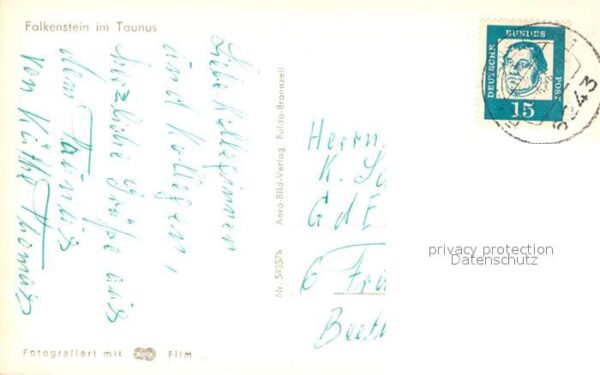 Falkenstein im Taunus
Liebe Kolleginnen
und Kollegen,
herzliche Grüße aus
dem Taunus
von Käthe Thomas
Nr. 59357h Aero-Bild-Verlag Fulda-Bronnzell
Fotografiert mit Film
DEUTSCHE BUNDES POST
15
6243
Herrn
K.
GdE
6
privacy protection
Datenschutz